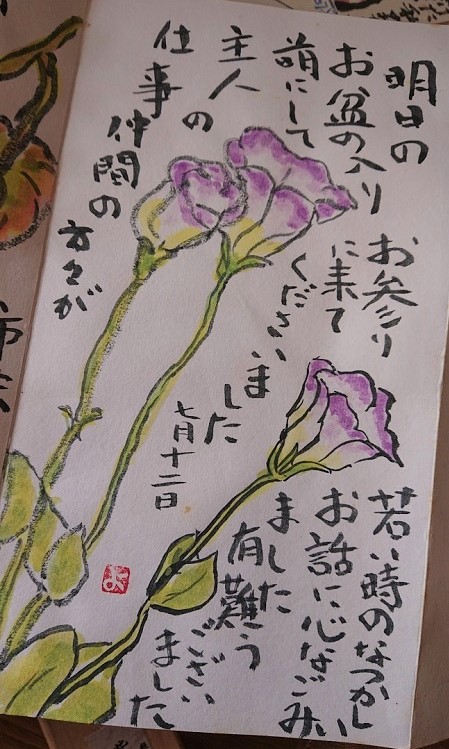 明日の
お盆の入り
萌にして
主人の
仕事仲間の
方々が
お参り
に来て
くださいま
した
七月十二日
若い時のなつかしい
お話に心なごみ
ました
有難う
ございました